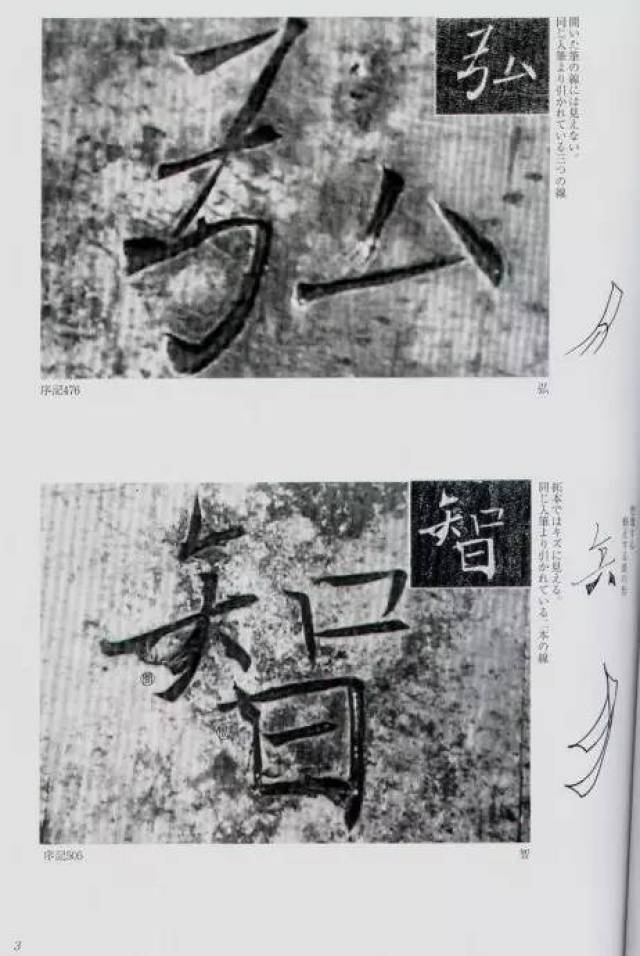 弘
弘
開いた筆の線には見えない。
同じ入筆より引かれている三つの線
序記476
弘
智
智
拓本ではキズに見える。
同じ入筆より引かれている、二本の線
序記505
智
3